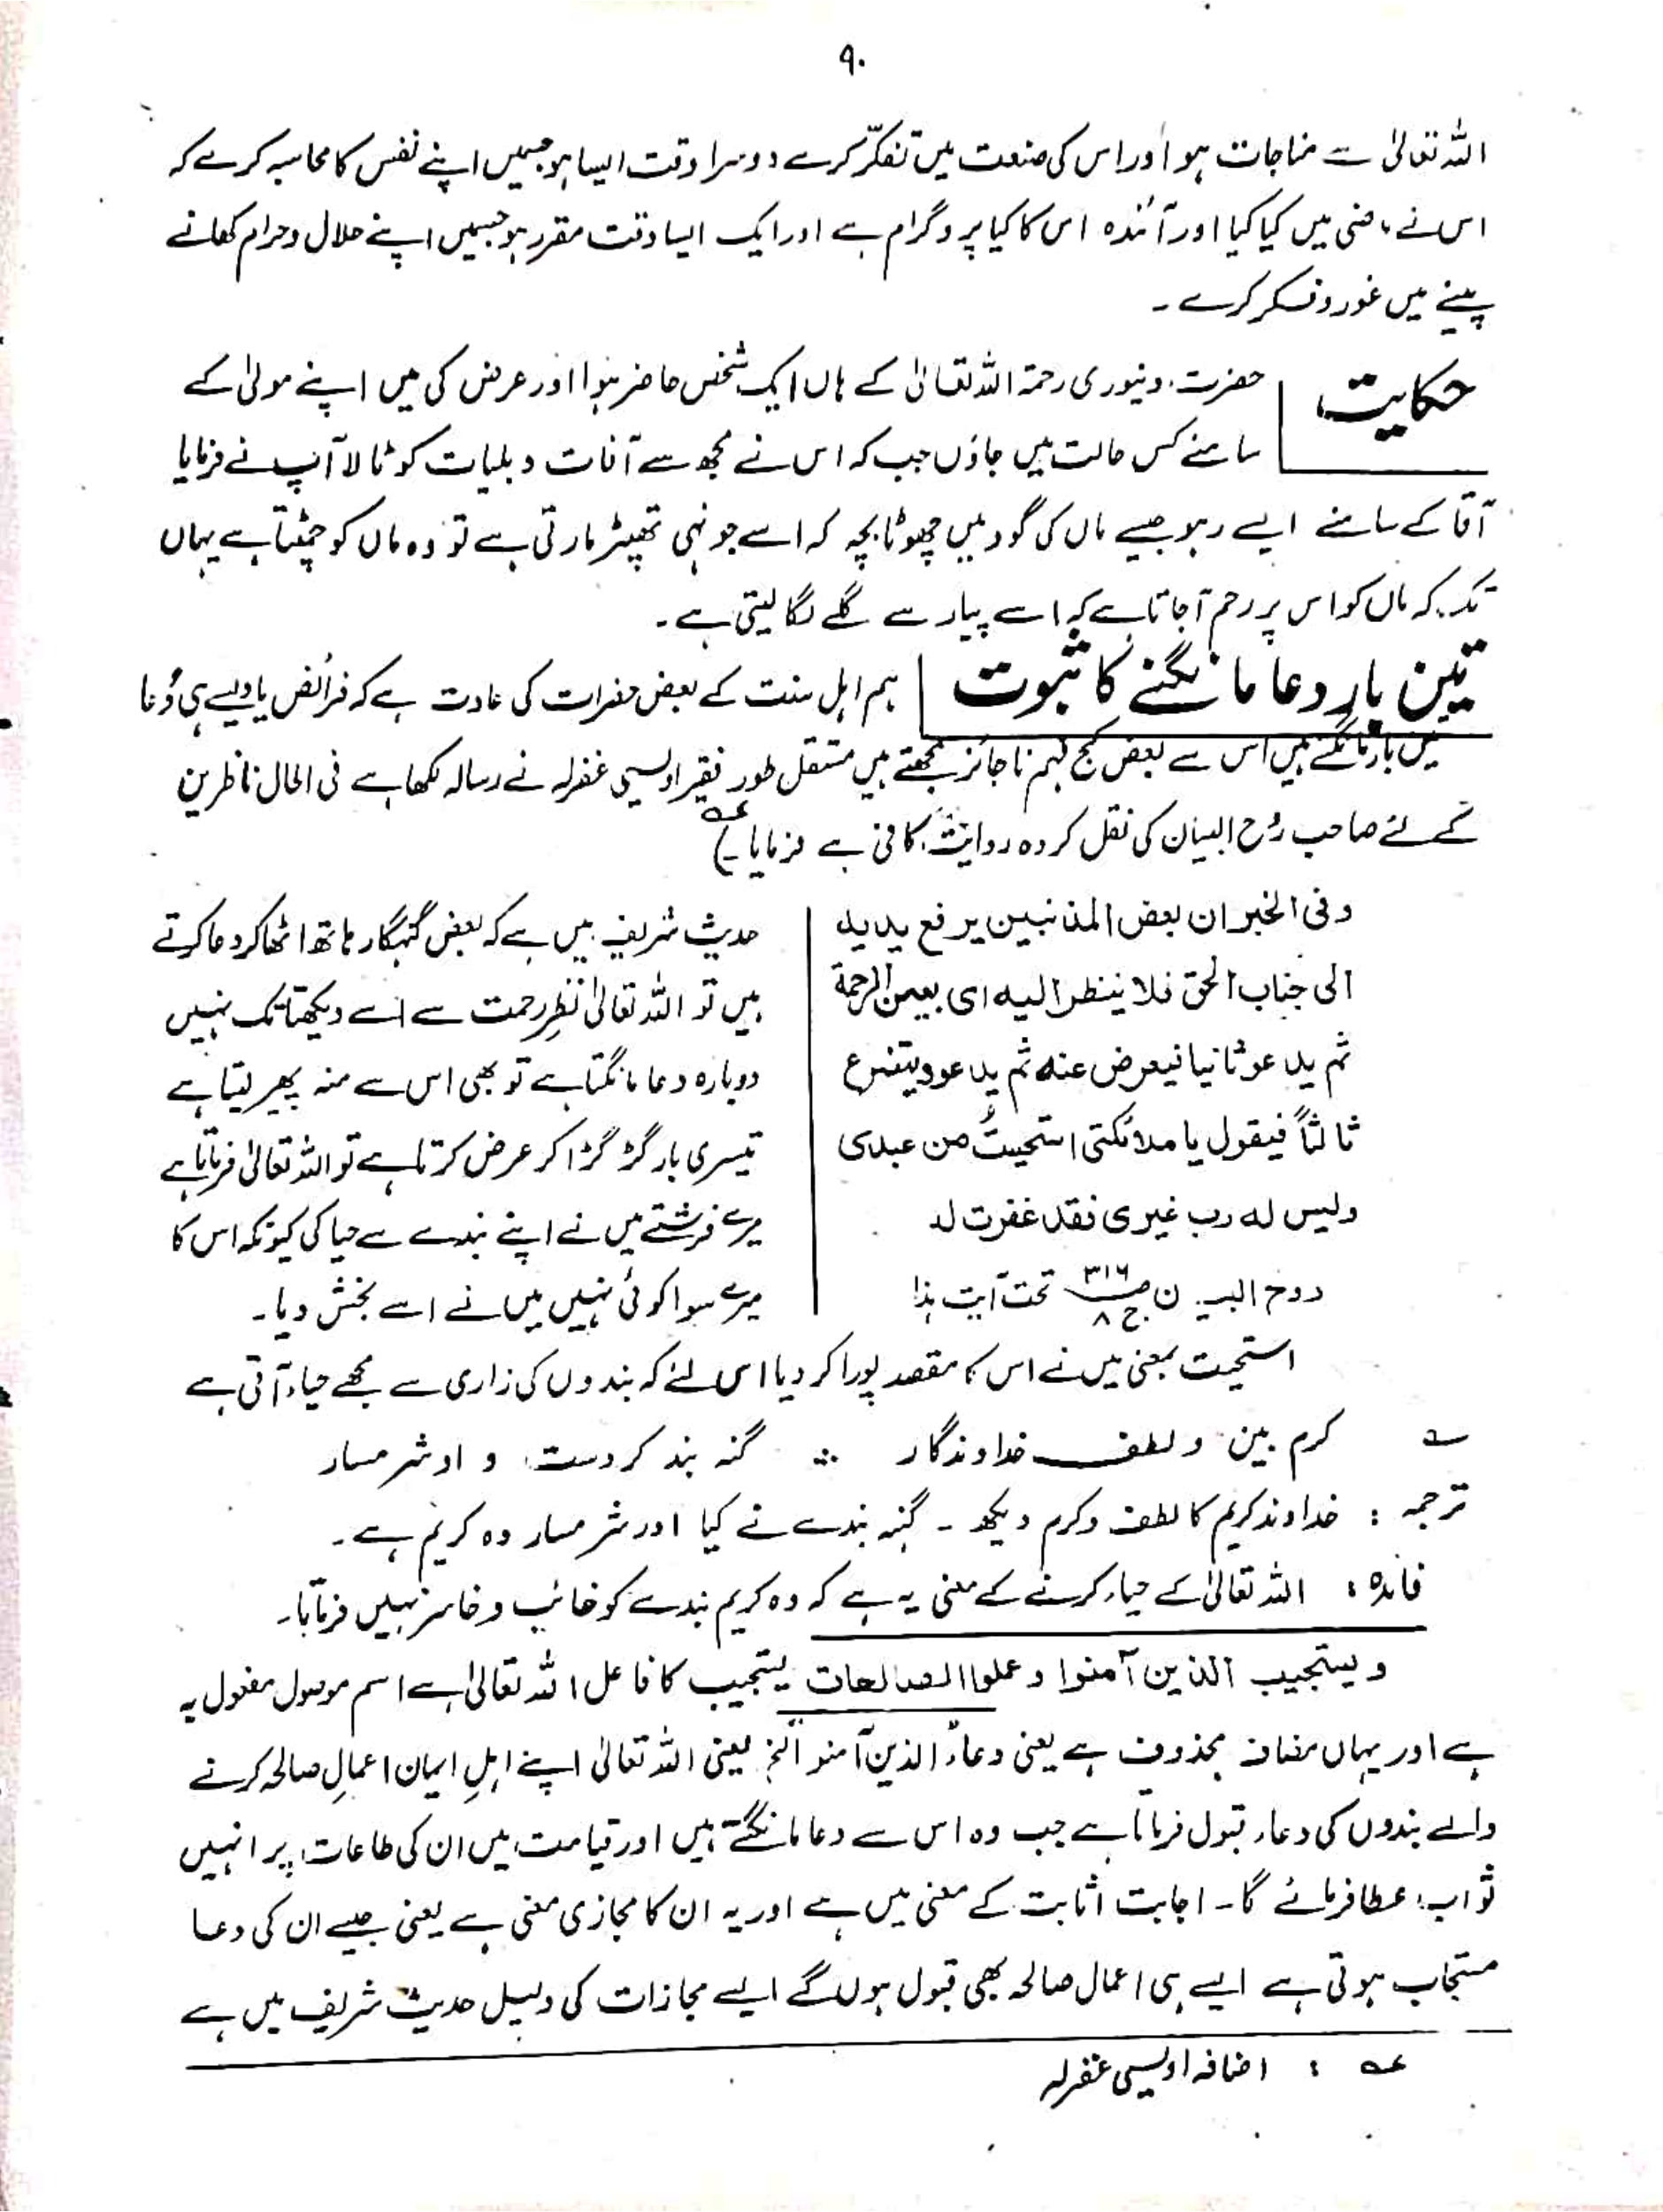 ۹۰
اللہ تعالیٰ سے مناجات ہو اور اس کی صنعت میں تفکّر کرے دوسرا وقت ایسا ہو جسمیں اپنے نفس کا محاسبہ کرے کہ
اس نے ماضی میں کیا کیا اور آئندہ اس کا کیا پروگرام ہے اور ایک ایسا وقت مقرر ہو جسمیں اپنے حلال و حرام کھانے
پینے میں غور و فکر کرے ۔
حکایت
حضرت دینوری رحمۃ اللہ تعالیٰ کے ہاں ایک شخص حاضر ہوا اور عرض کی میں اپنے مولیٰ کے
سامنے کس حالت میں جاؤں جب کہ اس نے مجھ سے آفات و بلیات کو ٹالا آپ نے فرمایا
آقا کے سامنے ایسے رہو جیسے ماں کی گود میں چھوٹا بچہ کہ اسے جونہی تھپڑ مارتی ہے تو وہ ماں کو چمٹتا ہے یہاں
تک کہ ماں کو اس پر رحم آجاتا ہے کہ اسے پیار سے گلے لگا لیتی ہے ۔
تین بار دعا مانگنے کا ثبوت
ہم اہل سنت کے بعض حضرات کی عادت ہے کہ فرائض یا ویسے ہی دُعا
تین بار مانگتے ہیں اس سے بعض کج فہم ناجائز سمجھتے ہیں مستقل طور فقیر اویسی غفرلہ نے رسالہ لکھا ہے فی الحال ناظرین
کے لئے صاحب رُوح البیان کی نقل کردہ روایت کافی ہے فرمایا ۔) عہ
وفی الخبر ان بعض المذنبین یرفع یدیہ
الی جناب الحق فلا ینظر الیہ ای بعین الرحمۃ
ثم یدعو ثانیا فیعرض عنہ ثم یدعو ویتضرع
ثالثاً فیقول یا ملائکتی استحیتُ من عبدی
ولیس لہ رب غیری فقد غفرت لہ
روح البیان ص ۳۱۶ ج ۸ تحت آیت ہذا
حدیث شریف میں ہے کہ بعض گنہگار ہاتھ اٹھا کر دعا کرتے
ہیں تو اللہ تعالیٰ نظرِ رحمت سے اسے دیکھتا تک نہیں
دوبارہ دعا مانگتا ہے تو بھی اس سے منہ پھیر لیتا ہے
تیسری بار گڑ گڑا کر عرض کرتا ہے تو اللہ تعالیٰ فرماتا ہے
میرے فرشتے میں نے اپنے بندے سے حیا کی کیونکہ اس کا
میرے سوا کوئی نہیں میں نے اسے بخش دیا ۔
استحیت بمعنی میں نے اس کا مقصد پورا کر دیا اس لئے کہ بندوں کی زاری سے مجھے حیاء آتی ہے
؎ کرم بین و لطف خداوندگار ؞ گنہ بند کردست و او شرمسار
ترجمہ : خداوند کریم کا لطف و کرم دیکھ ۔ گنہ بندے نے کیا اور شرمسار وہ کریم ہے ۔
فائدہ : اللہ تعالیٰ کے حیاء کرنے کے معنی یہ ہے کہ وہ کریم بندے کو خائب و خاسر نہیں فرماتا ۔
ویستجیب الذین آمنوا وعملوا الصالحات یستجیب کا فاعل اللہ تعالیٰ ہے اسم موصول مفعول بہ
ہے اور یہاں مضاف محذوف ہے یعنی دعاءَ الذین آمنو الخ یعنی اللہ تعالیٰ اپنے اہلِ ایمان اعمالِ صالحہ کرنے
والے بندوں کی دعاء قبول فرماتا ہے جب وہ اس سے دعا مانگتے ہیں اور قیامت میں ان کی طاعات پر انہیں
ثواب عطا فرمائے گا ۔ اجابت اثابت کے معنی میں ہے اور یہ ان کا مجازی معنی ہے یعنی جیسے ان کی دعا
مستجاب ہوتی ہے ایسے ہی اعمال صالحہ بھی قبول ہوں گے ایسے مجازات کی دلیل حدیث شریف میں ہے
عہ : اضافہ اویسی غفرلہ